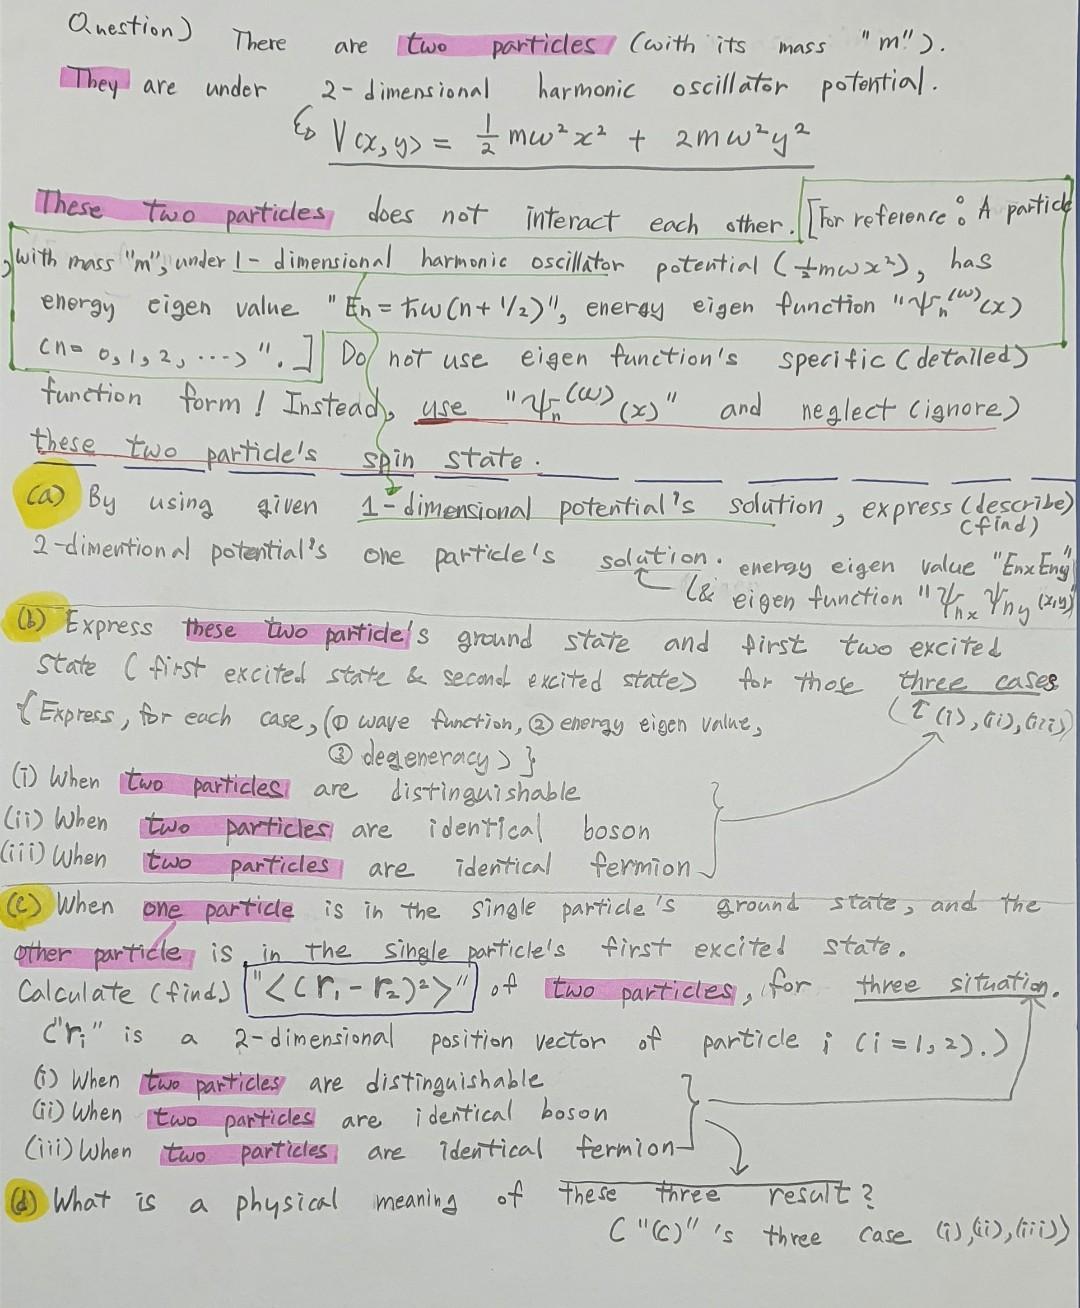 Question) There are two particles (with its mass "m").
They are under 2-dimensional harmonic oscillator potential.
V(x,y) = 1/2 mω²x² + 2mω²y²
These two particles does not interact each other. [For reference: A particle
with mass "m", under 1-dimensional harmonic oscillator potential (1/2mωx²), has
energy eigen value "En = ħω(n+1/2)", energy eigen function "ψn^(ω)(x)
(n= 0,1,2, ...)". ] Do not use eigen function's specific (detailed)
function form! Instead, use "ψn^(ω)(x)" and neglect (ignore)
these two particle's spin state.
(a) By using given 1-dimensional potential's solution, express (describe)
(find)
2-dimentional potential's one particle's solution. energy eigen value "Enx Eny"
(& eigen function "ψnx ψny (x,y)
(b) Express these two particle's ground state and first two excited
state (first excited state & second excited state) for those three cases
(i), (ii), (iii)
{Express, for each case, (① wave function, ② energy eigen value,
③ degeneracy) }
(i) When two particles are distinguishable
(ii) When two particles are identical boson
(iii) When two particles are identical fermion
(c) When one particle is in the single particle's ground state, and the
other particle is in the single particle's first excited state.
Calculate (find) "<(r₁-r₂)²>" of two particles, for three situation.
("rᵢ" is a 2-dimensional position vector of particle i (i=1,2).)
(i) When two particles are distinguishable
(ii) When two particles are identical boson
(iii) When two particles are identical fermion
(d) What is a physical meaning of these three result?
("(c)" 's three case (i),(ii),(iii))